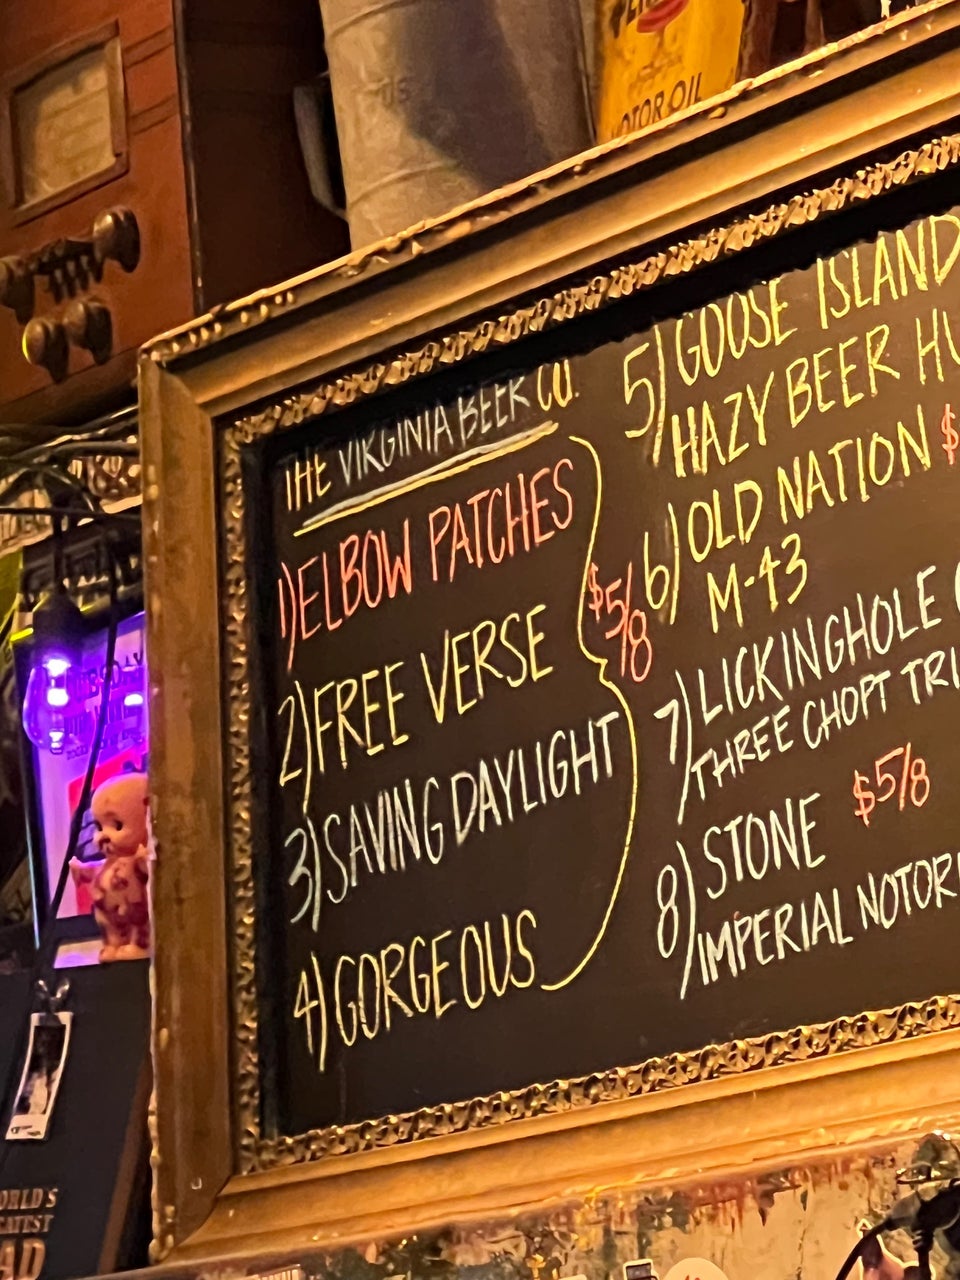 MOTOR OIL
THE VIRGINIA BEER CO.
1) ELBOW PATCHES
2) FREE VERSE
3) SAVING DAYLIGHT
4) GORGEOUS
$5/8
5) GOOSE ISLAND
HAZY BEER HU
6) OLD NATION $
M-43
7) LICKINGHOLE
THREE CHOPT TRI
8) STONE $5/8
IMPERIAL NOTOR